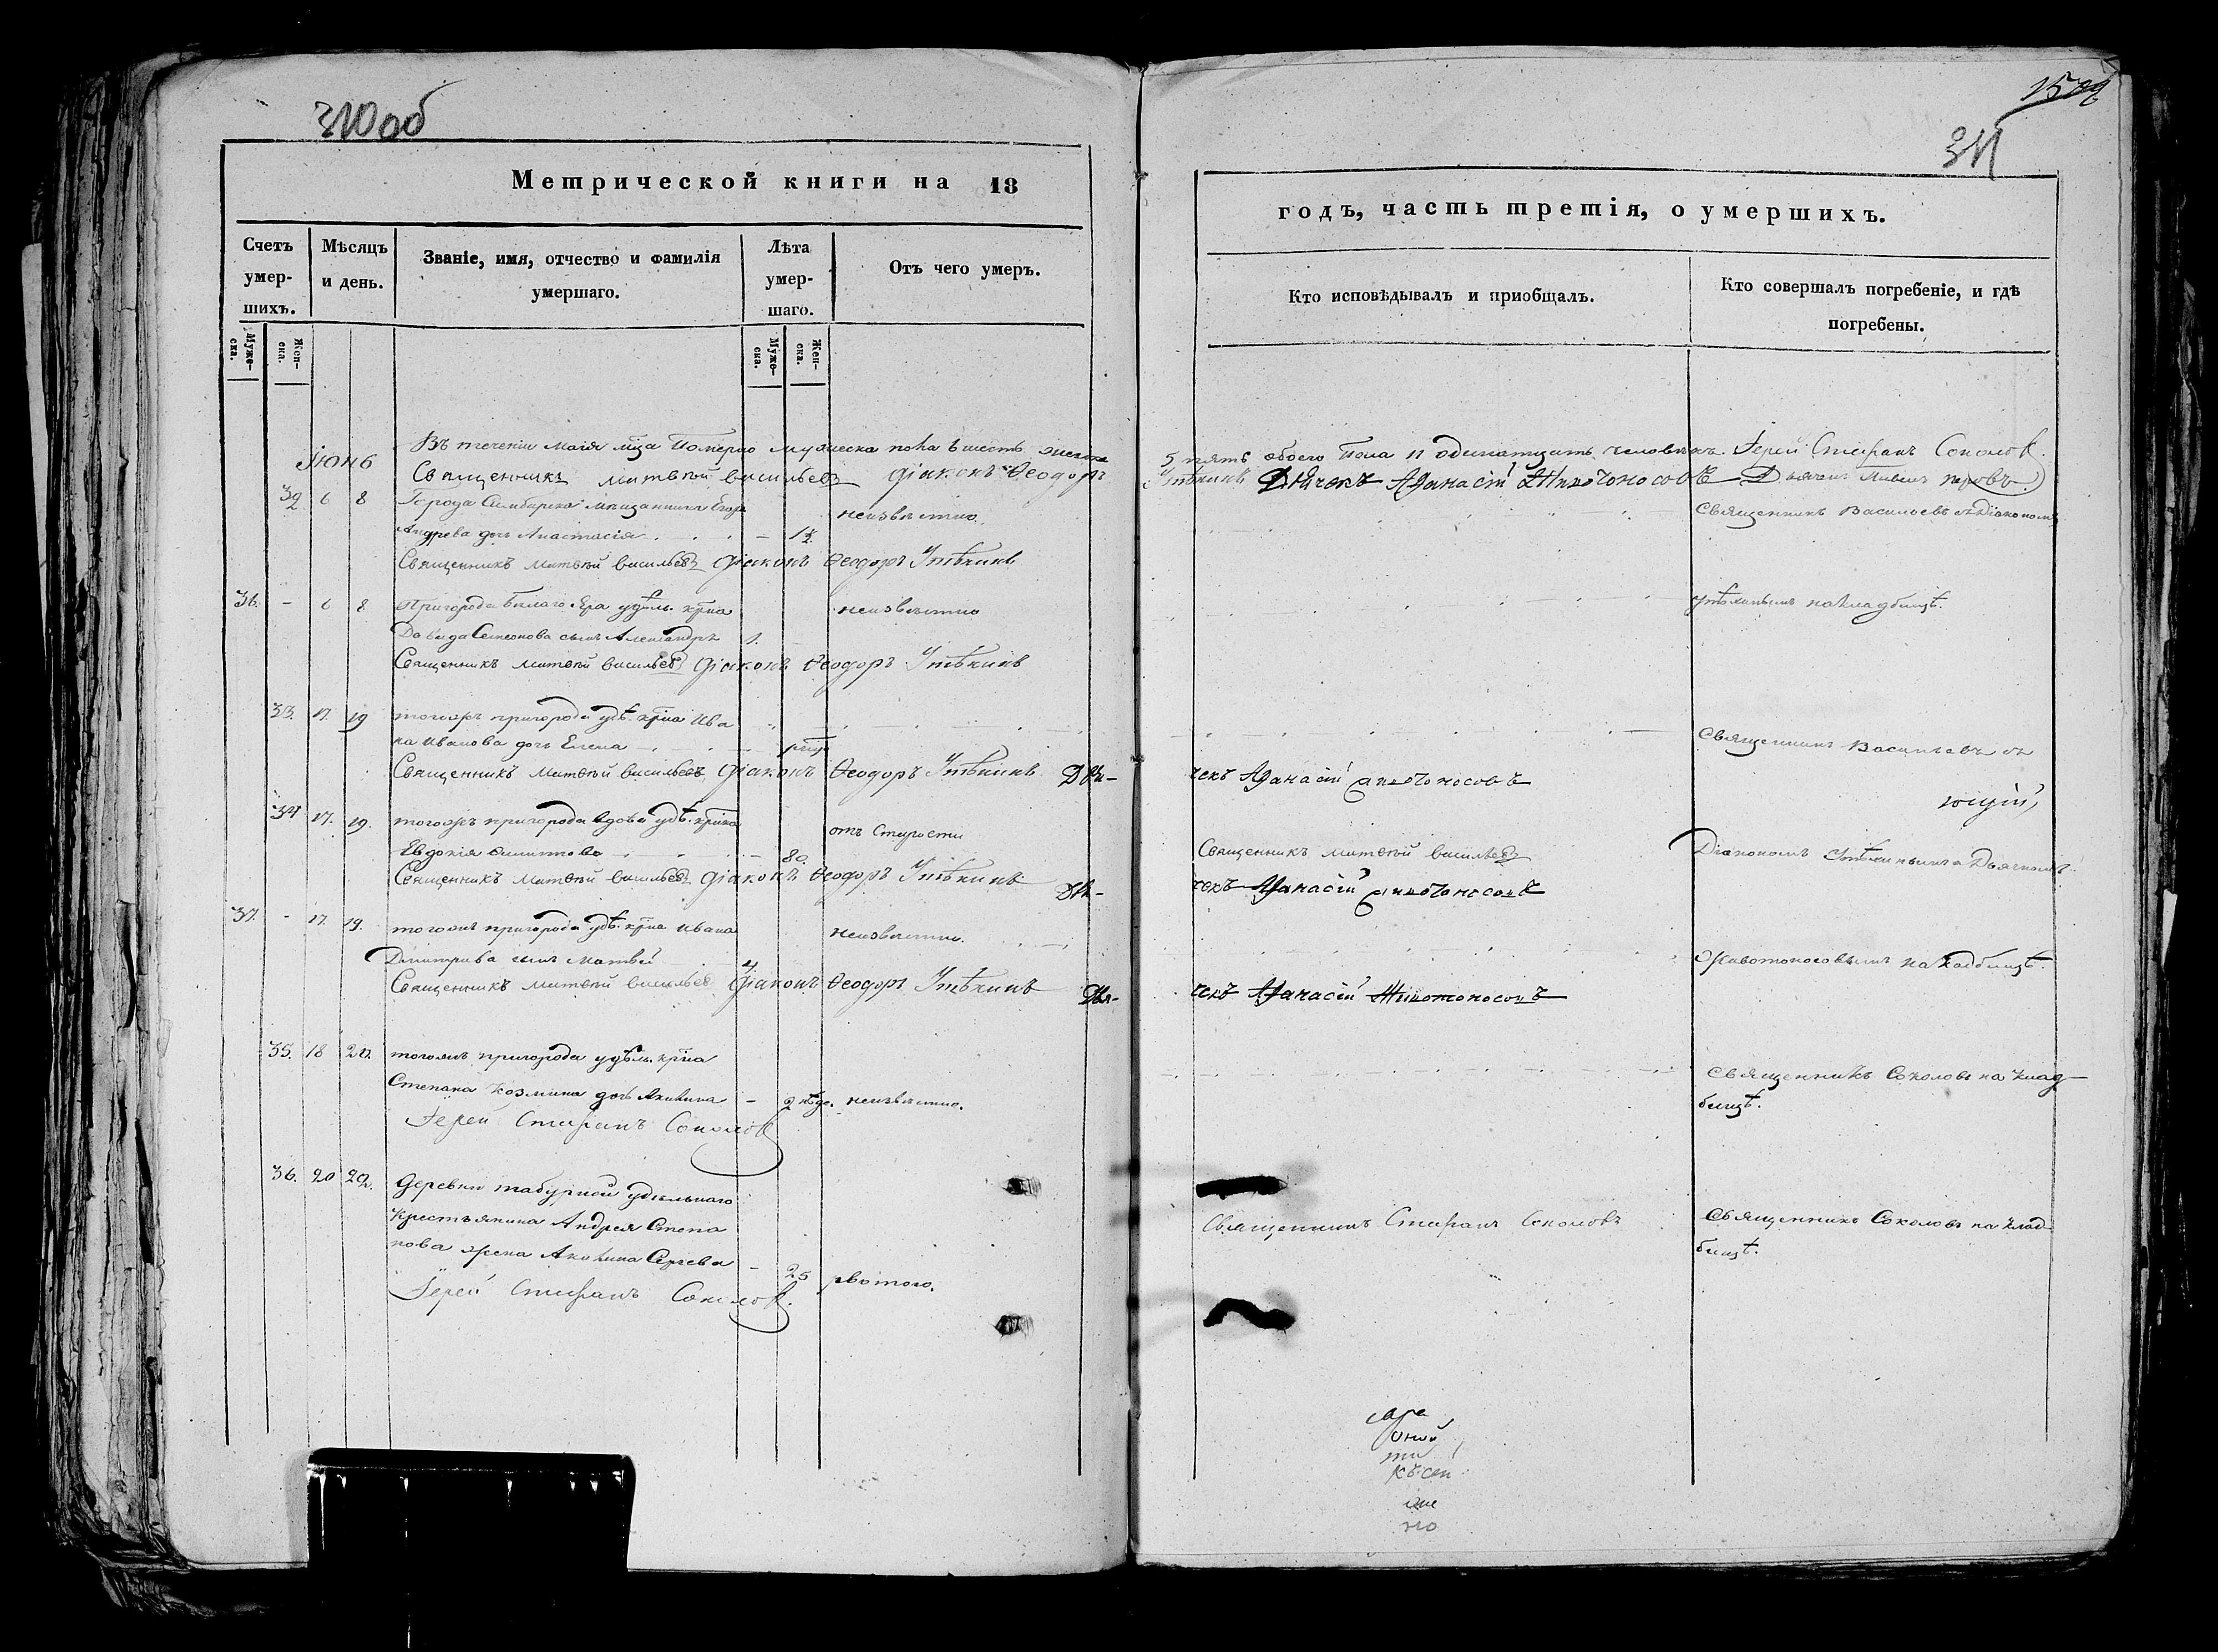 310об
Метрической книги на 18
Счетъ умер-шихъ.
Мѣсяцъ и день.
Званіе, имя, отчество и фамилія умершаго.
Лѣта умер-шаго.
Отъ чего умеръ.
Муже-ска.
Жен-ска.
Муже-ска.
Жен-ска.
Въ теченіи маія мца померло мужеска пола 6 шесть женска
Іюнь
Священникъ Матвѣй Васильевъ Діаконъ Ѳеодоръ
32 6 8 Города Симбирска мѣщанина Егора
неизвѣстно.
Андрева дочь Анастасія - 1½
Священникъ Матвѣй Васильевъ Діаконъ Ѳеодоръ Утѣхинъ
36. - 6 8 Пригорода Бѣлаго Яра удѣль. крна
неизвѣстно
Давида Семенова сынъ Александръ 1.
Священникъ Матвѣй Васильевъ Діаконъ Ѳеодоръ Утѣхинъ
33. 17. 19 тогожъ пригорода удѣ. крна Ива
на Иванова дочь Елена
Священникъ Матвѣй Васильевъ Діаконъ Ѳеодоръ Утѣхинъ Дья-
34 17. 19. тогожъ пригорода вдова удѣ. крнка
отъ старости
Евдокія 80.
Священникъ Матвѣй Васильевъ Діаконъ Ѳеодоръ Утѣхинъ Дья-
37. - 17. 19. тогожъ пригорода удѣ. крна Ивана
неизвѣстно.
Дмитріва сынъ Матвей 4
Священникъ Матвѣй Васильев Діаконъ Ѳеодоръ Утѣхинъ Дья-
35. 18 20. тогожъ пригорода удѣль. крна
Степана Козмина дочь Акилина - 2 нѣде. неизвѣстно.
Іерей Стефанъ Соколов
36. 20 22. Деревни Табурной удѣльнаго
крестьянина Андрея Степа
нова жена Акилина Сергева - 25 рвотою.
Іерей Стефанъ Соколов.
311
годъ, часть третія, о умершихъ.
Кто исповѣдывалъ и приобщалъ.
Кто совершалъ погребеніе, и гдѣ погребены.
5 пять обоего пола 11 одинатцать человѣкъ. Іерей Стефанъ Соколов.
Утѣхинъ Дьячекъ Афанасій Животоносовъ Дьячекъ
Священникъ Васильевъ съ Діакономъ
Утѣхинымъ на кладбищѣ.
Священникъ Васильевъ съ
чекъ Афанасій Животоносовъ
Священникъ Матвѣй Васильевъ
Діакономъ Утѣхинымъ и Дьячкомъ
чекъ Афанасій Животоносовъ
Животоносовымъ на кладбищѣ.
чекъ Афанасій Животоносовъ
Священникъ Соколовъ на клад-
бищѣ.
Священникъ Стефанъ Соколовъ
Священникъ Соколовъ на клад-
бищѣ.